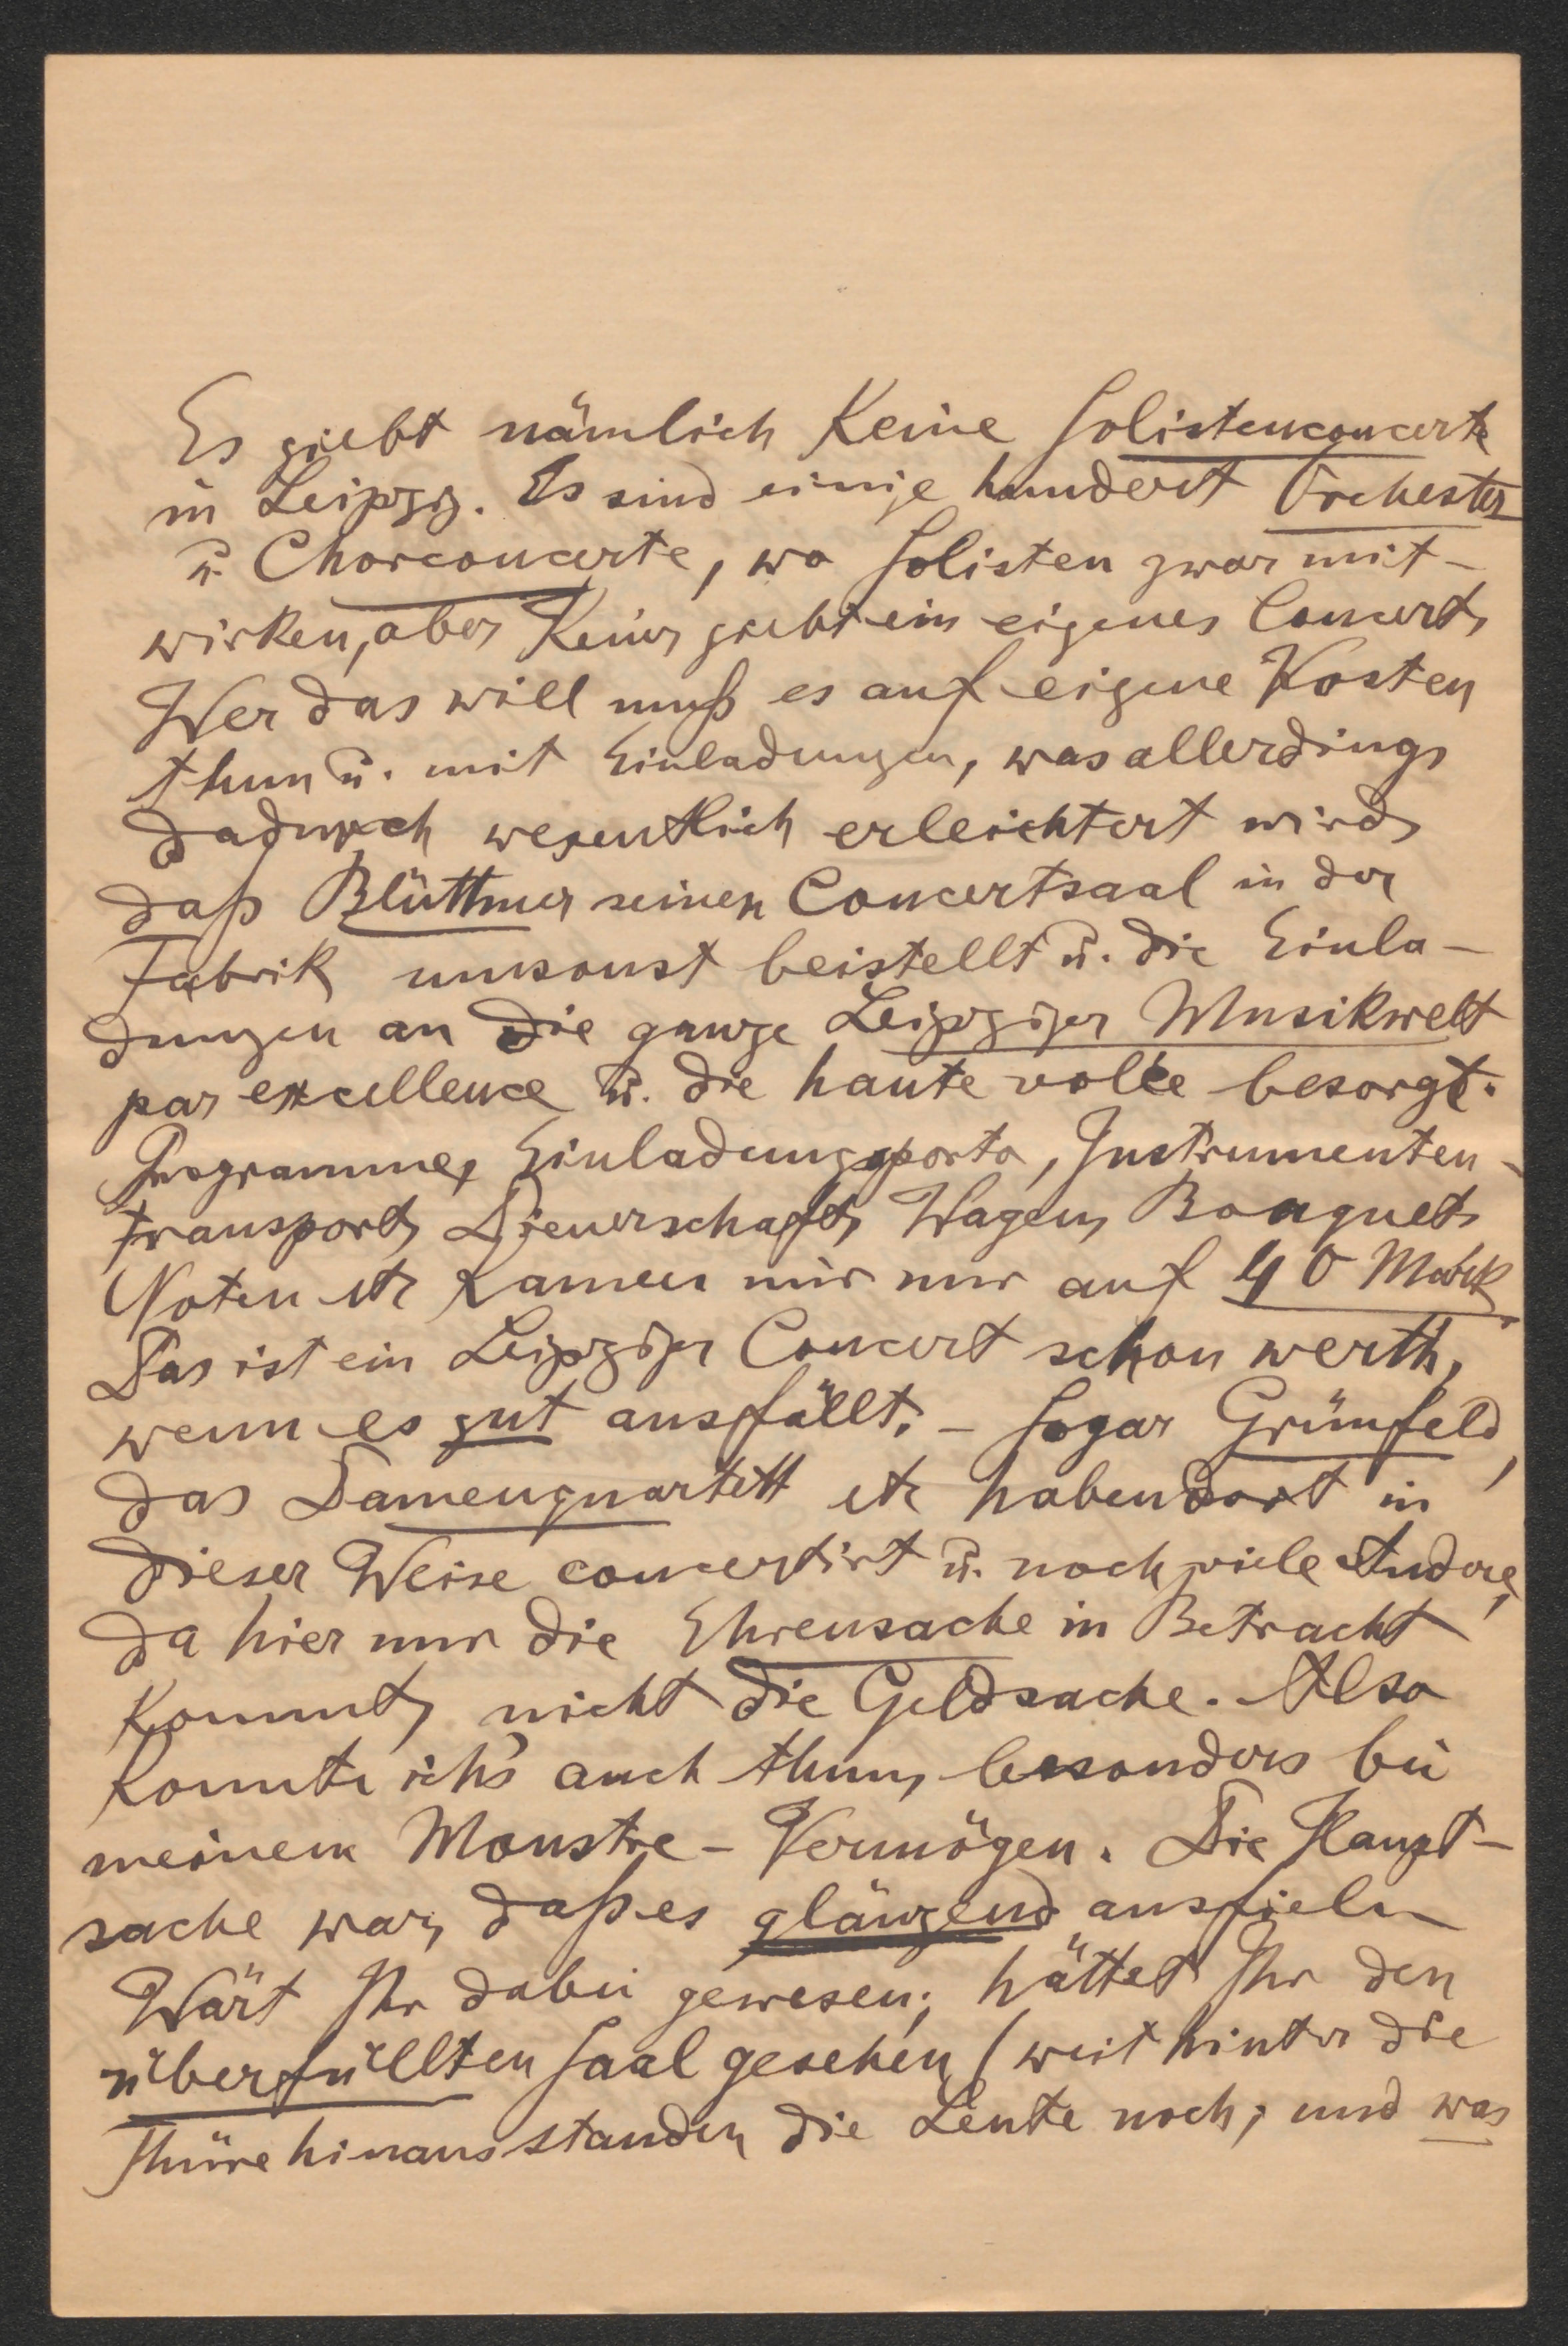 Es giebt nämlich Keine Solistenconcerte
in Leipzig. Es sind einige hundert Orchester
u. Chorconcerte, wo Solisten zwar mit-
wirken, aber Keiner giebt ein eigenes Concert,
Wer das will muß es auf eigene Kosten
thun u. mit Einladungen, was allerdings
dadurch wesentlich erleichtert wird,
daß Blüttner seinen Concertsaal in der
Fabrik umsonst beistellt u. die Einla-
dungen an die ganze Leipziger Musikwelt
par excellence u. die haute volée besorgt.
Programme, Einladungsporto, Instrumenten-
transport, Dienerschaft, Wagen, Bouquet,
Noten etc kamen mir nur auf 40 Mark.
Das ist ein Leipziger Concert schon werth,
wenn es gut ausfällt. – Sogar Grünfeld,
das Damenquartett etc haben dort in
dieser Weise concertirt u. noch viele Andere,
da hier nur die Ehrensache in Betracht
Kommt, nicht die Geldsache. Also
konnte ich's auch thun, besonders bei
meinem Monstre-Vermögen. Die Haupt-
sache war, daß es glänzend ausfiel.
Wärt Ihr dabei gewesen; hättet Ihr den
überfüllten Saal gesehen (weit hinter die
Thüre hinaus standen die Leute noch; und was